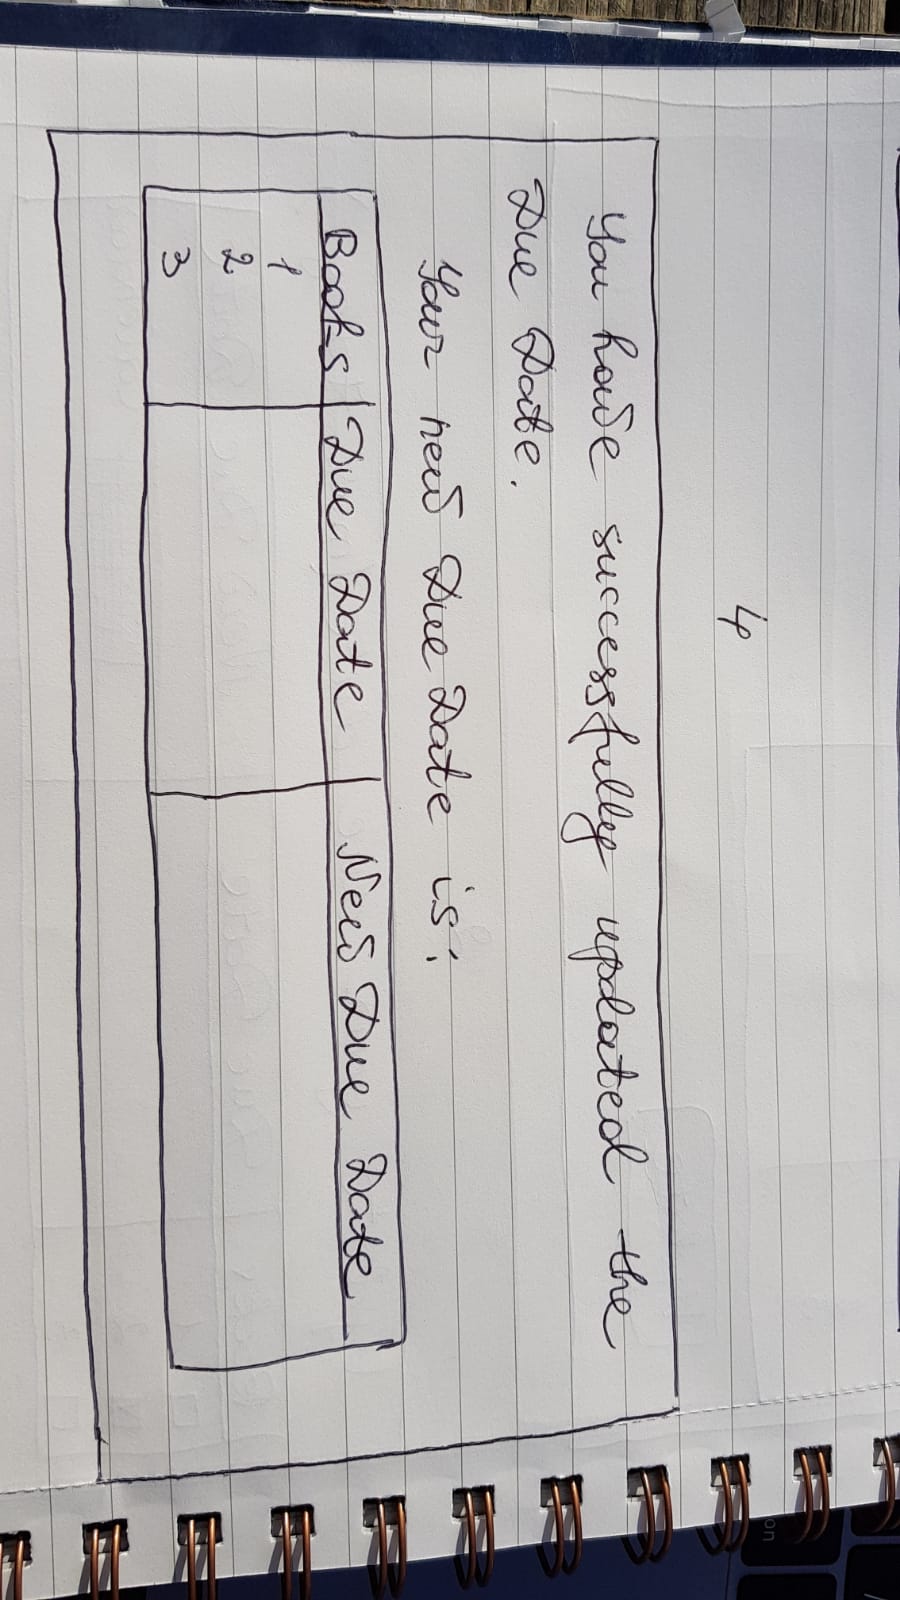 4
You have successfully updated the
Due Date.
Your new Due Date is:
Books Due Date New Due Date
1
2
3
on